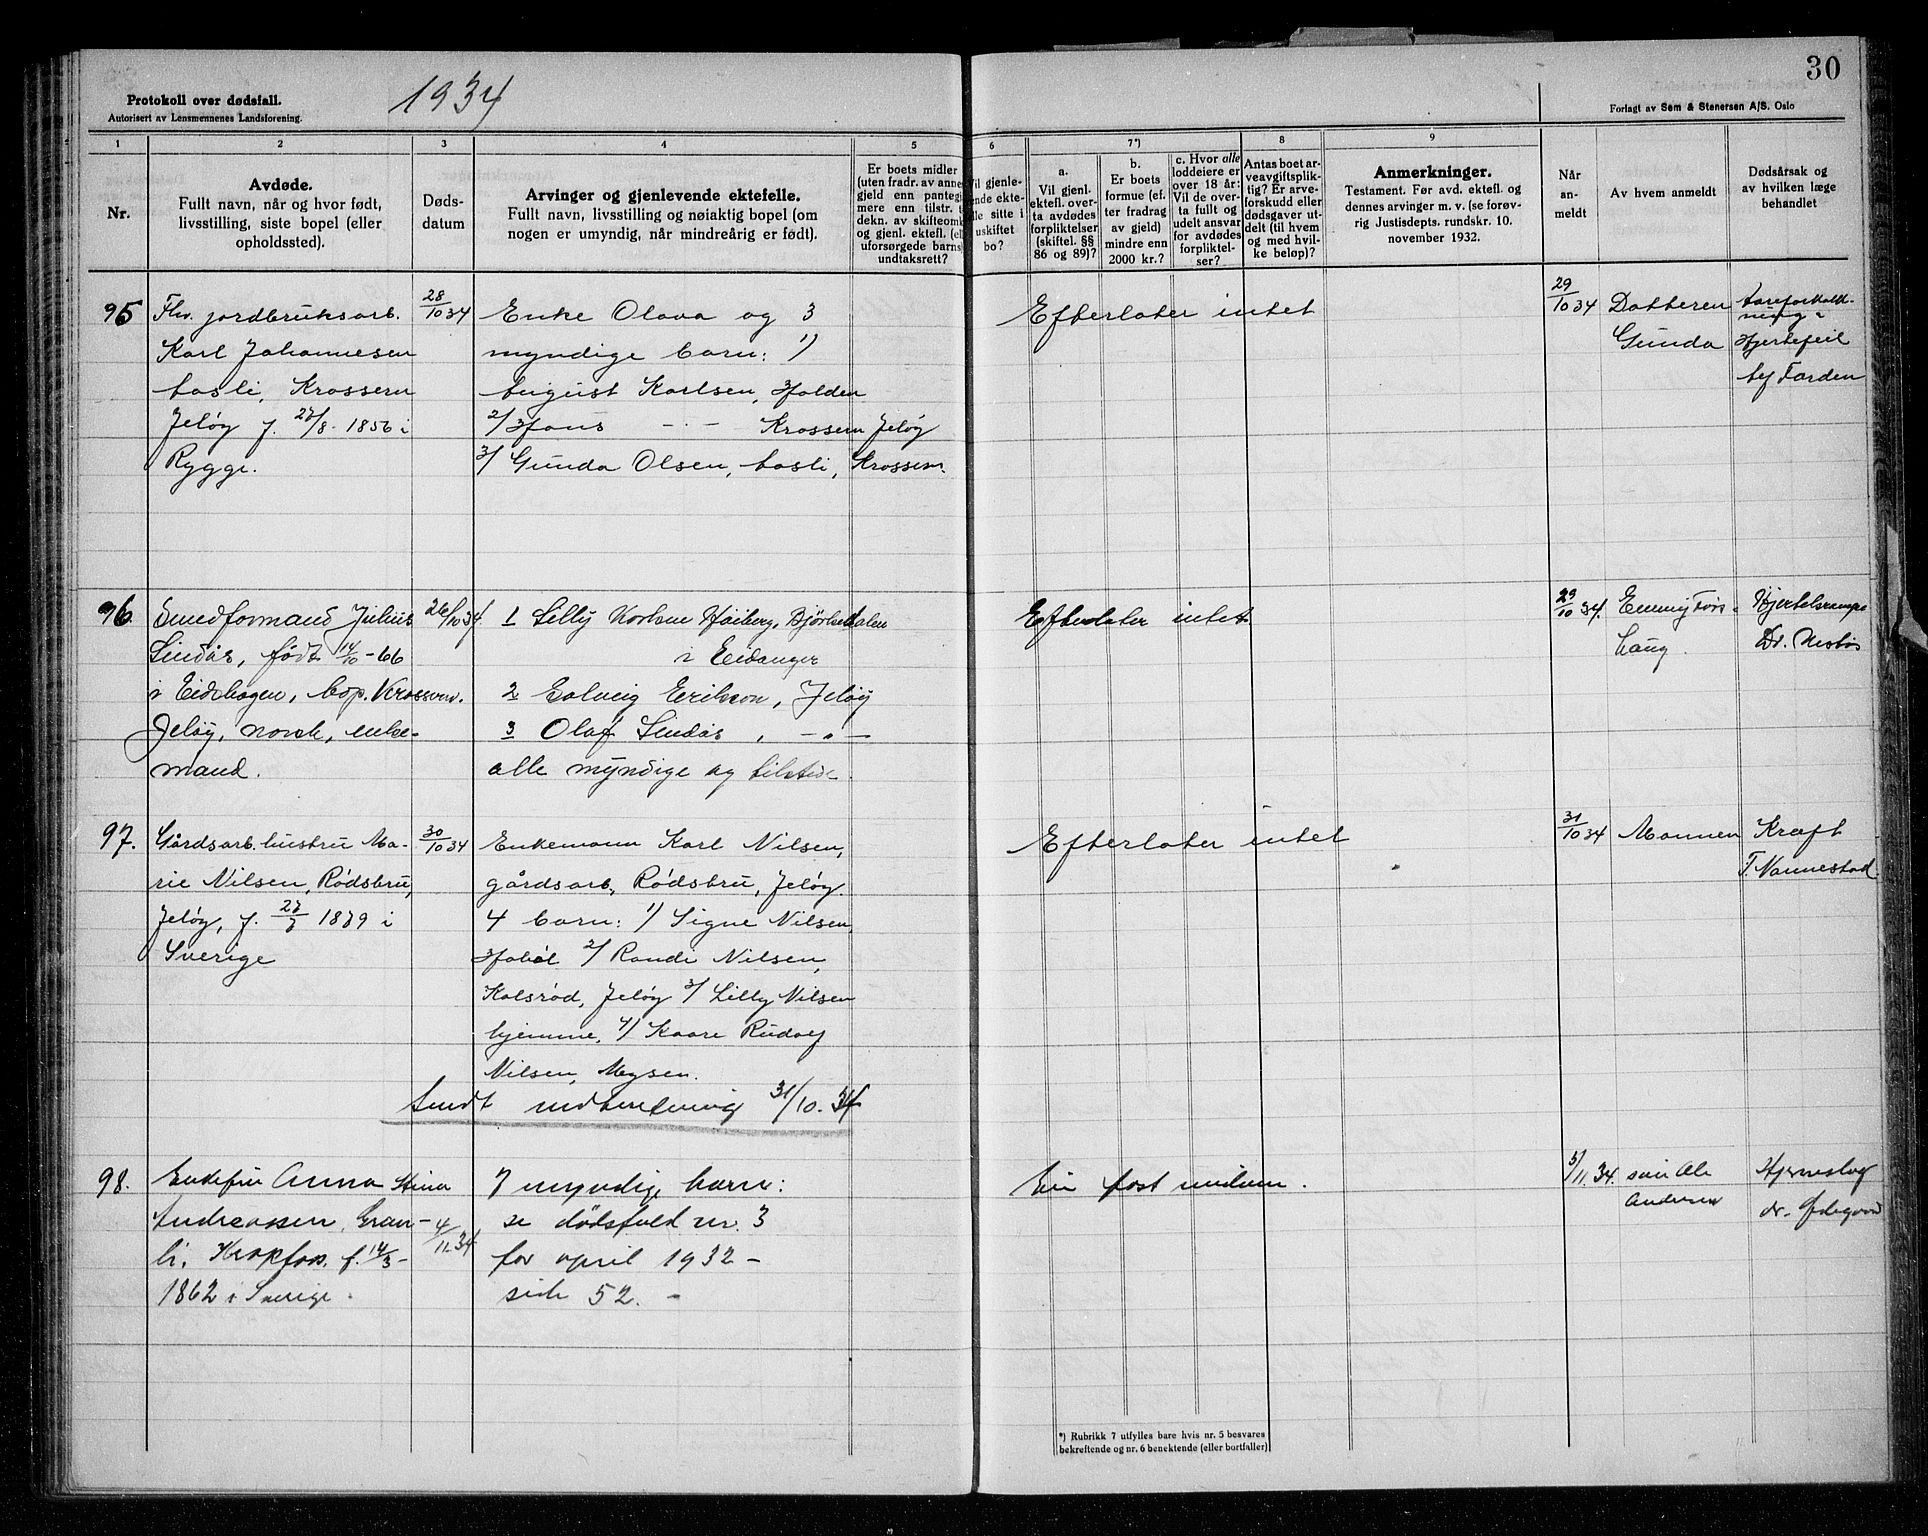 30
1934
Protokoll over dødsfall.
Autorisert av Lensmennenes Landsforening.
Forlagt av Sem & Stenersen A/S. Oslo
1 2 3 4 5 6 7*) 8 9
Nr.
Avdøde.
Fullt navn, når og hvor født,
livsstilling, siste bopel (eller
opholdssted).
Døds-
datum
Arvinger og gjenlevende ektefelle.
Fullt navn, livsstilling og nøiaktig bopel (om
nogen er umyndig, når mindreårig er født).
Er boets midler
(uten fradr. av anne
gjeld enn pantegj
mere enn tilstr. t
dekn. av skifteomk
og gjenl. ektefl. (el
uforsørgede barns
undtaksrett?
Vil gjenle-
ende ekte-
lle sitte i
uskiftet
bo?
a.
Vil gjenl.
ektefl. over-
ta avdødes
forpliktelser
(skiftel. §§
86 og 89)?
b.
Er boets
formue (ef-
ter fradrag
av gjeld)
mindre enn
2000 kr.?
c. Hvor alle
loddeiere er
over 18 år:
Vil de over-
ta fullt og
udelt ansvar
for avdødes
forpliktel-
ser?
Antas boet ar-
veavgiftsplik-
tig? Er arve-
forskudd eller
dødsgaver ut-
delt (til hvem
og med hvil-
ke beløp)?
Anmerkninger.
Testament. Før avd. ektefl. og
dennes arvinger m. v. (se forøv-
rig Justisdepts. rundskr. 10.
november 1932.
Når
an-
meldt
Av hvem anmeldt
Dødsårsak og
av hvilken læge
behandlet
95
Fhv. jordbruksarb.
Karl Johannesen
Krossern
Jeløy f. 27/8 1856 i
Rygge.
28/10 34
Enke Olava og 3
myndige barn: 1)
August Karlsen, Halden
2/ Hans -"- Krossern Jeløy
3/ Gunda Olsen, Krossern.
Efterlater intet
29/10 34
Datteren
Gunda
Hjertefeil
96.
Julius
Lindås, født 14/10 -66
i Eidskogen, bop. Krossern.
Jeløy, norsk, enke-
mand.
26/10 34.
1 Lilly Høiberg,
i Eidanger
2 Solveig Erikson, Jeløy
3 Olaf Lindås, -"-
alle myndige og tilstede.
Efterlater intet.
29/10 34.
97.
Gårdsarb. hustru Ma-
rie Nilsen, Rødsbru,
Jeløy, f. 27/7 1879 i
Sverige
30/10 34
Enkemann Karl Nilsen,
gårdsarb, Rødsbru, Jeløy.
4 barn: 1) Signe Nilsen,
Hobøl 2/ Randi Nilsen,
Kolsrød, Jeløy 3/ Lilly Nilsen
hjemme, 4) Kaare Rudolf
Nilsen, Mysen.
Sendt indberetning 31/10. 34
Efterlater intet
31/10 34
Mannen
Kreft
T. Nannestad.
98.
Enkefru Anna Stina
Andreassen, Gran-
li, Kropfos. f. 14/3-
1862 i Sverige.
4/11 34
7 myndige barn:
se dødsfald nr. 3
for april 1932 -
side 52. -
5/11. 34.
Hjerneslag
dr. Ødegaard
*) Rubrikk 7 utfylles bare hvis nr. 5 besvares
bekreftende og nr. 6 benektende (eller bortfaller)